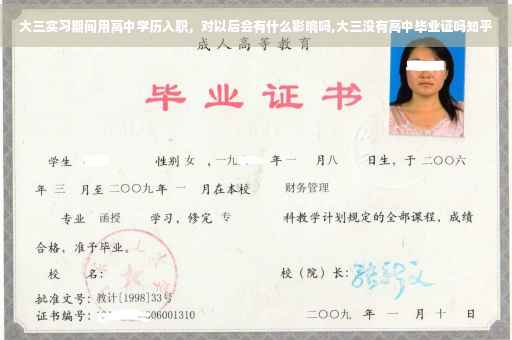 大三实习期间用高中学历入职，对以后会有什么影响吗,大三没有高中毕业证吗知乎
成人高等教育
毕业证书
学生 性别 女 ，一九 年 一 月八 日生，于 二〇〇六
年 三 月至 二〇〇九 年 一 月在本校 财务管理
专业 函授 学习，修完 专 科教学计划规定的全部课程，成绩
合格，准予毕业。
校 名： 校（院）长：
批准文号：教计[1998]33号
证书编号： 06001310 二〇〇九 年 一 月 十 日